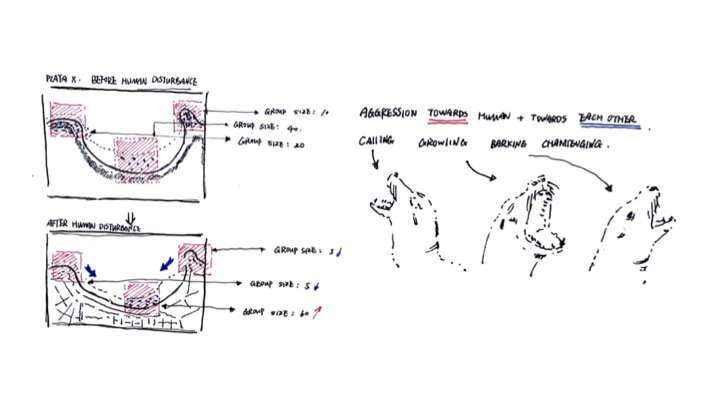 PLAYA X. BEFORE HUMAN DISTURBANCE
GROUP SIZE: 10
GROUP SIZE: 40.
GROUP SIZE: 20
AFTER HUMAN DISTURBANCE
GROUP SIZE: 5
GROUP SIZE: 5
GROUP SIZE: 60
AGGRESSION TOWARDS HUMAN + TOWARDS EACH OTHER.
CALLING GROWLING BARKING CHAMLENGING.